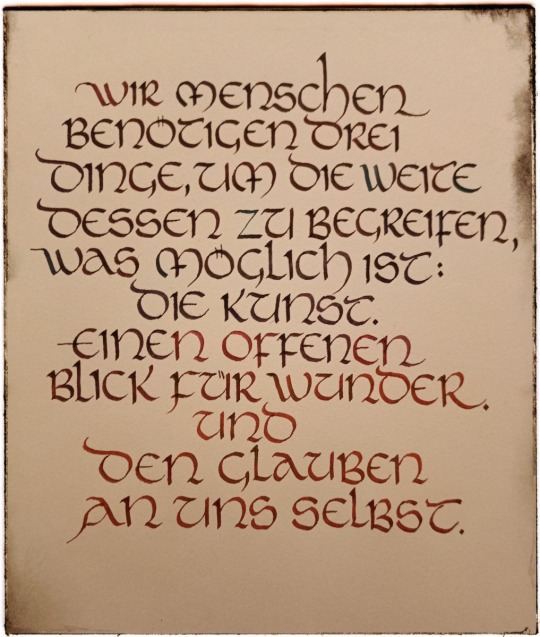 Wir Menschen
benötigen drei
Dinge, um die Weite
dessen zu begreifen,
was möglich ist:
Die Kunst.
Einen offenen
Blick für Wunder.
Und
den Glauben
an uns selbst.